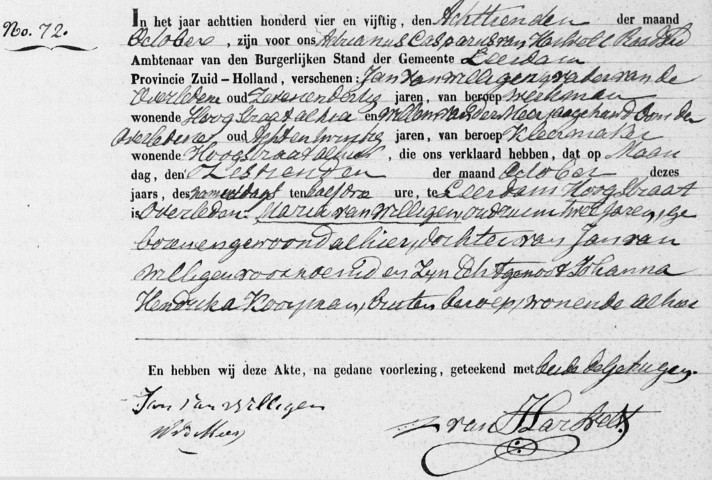 No. 72.
In het jaar achttien honderd vier en vijftig, den Achttienden der maand
October, zijn voor ons Adrianus Casparus van Raad
Ambtenaar van den Burgerlijken Stand der Gemeente Leerdam
Provincie Zuid-Holland, verschenen: Jan van Willigen, vader van de
Overledene oud Zevenendertig jaren, van beroep Werkman
wonende Hoogstraat alhier en Willem van der Meer, aangehand van den
Overledene oud Achtentwintig jaren, van beroep Kleermaker
wonende Hoogstraat alhier, die ons verklaard hebben, dat op Maan
dag, den Zestienden der maand October dezes
jaars, des namiddags ten half drie ure, te Leerdam Hoogstraat
is Overleden Maria van Willigen, oud ruim twee jaren, ge
boren en gewoond alhier, dochter van Jan van
Willigen voornoemd en Zijn Echtgenoot Johanna
Hendrika Kooijman, buiten beroep, wonende alhier
En hebben wij deze Akte, na gedane voorlezing, geteekend met beide de getuigen.
Jan van Willigen
W v d Meer
van